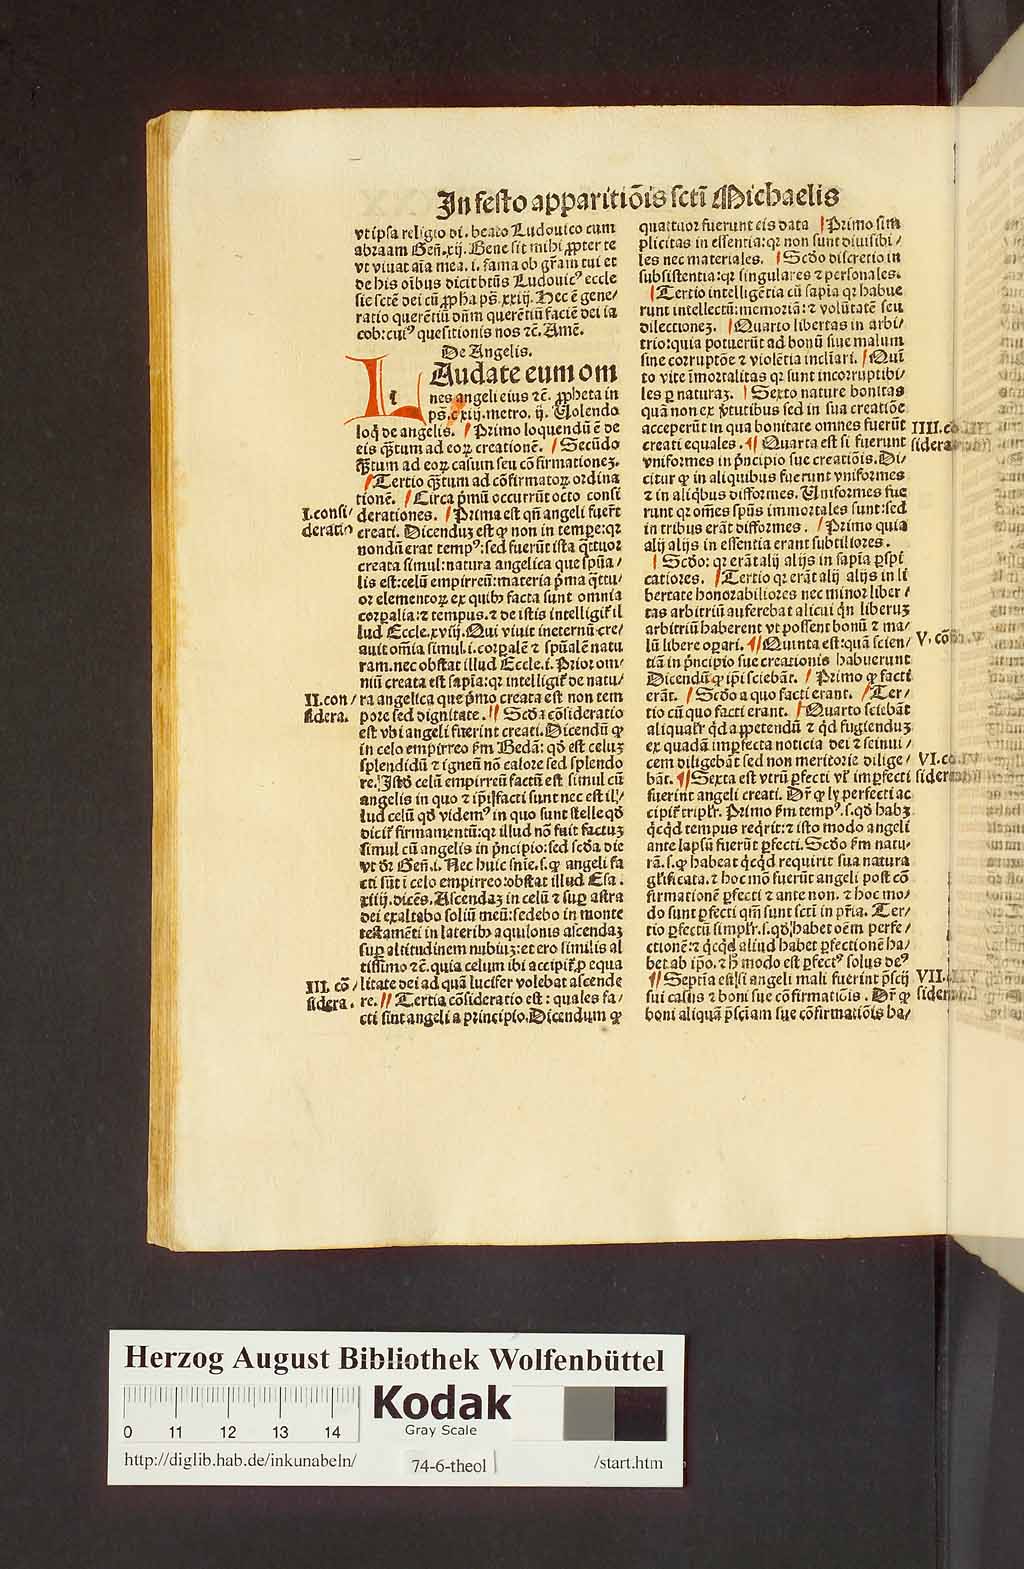 In festo apparitiōis sctī Michaelis
vt ipsa religio di. beato Ludouico cum
abraam Geñ.xij. Bene sit mihi ꝓpter te
vt viuat aīa mea. i. fama ob grām tui et
de his oībus dicit btūs Ludouicꝰ eccle
sie sctē dei cū ꝓpha pš. xxiij. Hec ē gene/
ratio querētiū dūm querētiū faciē dei ia
cob: cuiꝰ quesitionis nos ⁊c. Amē.
De Angelis.
LAudate eum om
nes angeli eius ⁊c. ꝓpheta in
pš. cxiij. metro. ij. Uolendo
loq̄ de angelis. Primo loquendū ē de
eis qꝫtum ad eoꝝ creationē. Secūdo
qꝫtum ad eoꝝ casum seu cōfirmationeꝫ.
Tertio qꝫtum ad cōfirmatoꝝ ordina
tionē. Circa p̄mū occurrūt octo consi
I.consi/
deratio
derationes. Prima est qñ angeli fuer̄t
creati. Dicenduꝫ est ꝙ non in tempe: qꝛ
nondū erat tempꝰ: sed fuerūt ista q̄ttuor
creata simul: natura angelica que spūa/
lis est: celū empirreū: materia p̄ma q̄ttu/
or elementoꝝ ex quibꝰ facta sunt omnia
corꝑalia: ⁊ tempus. ⁊ de istis intelligiť il
lud Eccle. xviij. Qui viuit ineternū cre/
auit om̄ia simul. i. corꝑalē ⁊ spūalē natu
ram. nec obstat illud Eccle. i. Prior om/
niū creata est sapīa: qꝛ intelligiť de natu/
II.con/
sidera.
ra angelica que p̄mo creata est non tem
pore sed dignitate. Scďa cōsideratio
est vbi angeli fuerint creati. Dicendū ꝙ
in celo empirreo ẜm Bedā: qď est celuꝫ
splendidū ⁊ igneū nō calore sed splendo
re. Istď celū empirreū factū est simul cū
angelis in quo ⁊ ip̄i facti sunt nec est il/
lud celū qď videmꝰ in quo sunt stelle qď
diciť firmamentū: qꝛ illud nō fuit factuꝫ
simul cū angelis in p̄ncipio: sed scďa die
vt dꝛ Geñ. i. Nec huic sn̄ie. s. ꝙ angeli fa
cti sūt ī celo empirreo: obstat illud Esa.
xiiij. dicēs. Ascendaꝫ in celū ⁊ suꝑ astra
dei exaltabo soliū meū: sedebo in monte
testamēti in lateribꝰ aquilonis ascendaꝫ
suꝑ altitudinem nubiuꝫ: et ero similis al
tissimo ⁊c. quia celum ibi accipiť ꝓ equa
III. cō/
sidera.
litate dei ad quā lucifer volebat ascende
re. Tertia cōsideratio est: quales fa/
cti sint angeli a principio. Dicendum ꝙ
quattuor fuerunt eis data Primo sim
plicitas in essentia: qꝛ non sunt diuisibi/
les nec materiales. Scďo discretio in
subsistentia: qꝛ singulares ⁊ personales.
Tertio intelligētia cū sapīa qꝛ habue
runt intellectū: memoriā: ⁊ volūtatē seu
dilectioneꝫ. Quarto libertas in arbi/
trio: quia potuerūt ad bonū siue malum
sine corruptōe ⁊ violētia incliari. Quī
to vite īmortalitas qꝛ sunt incorruptibi/
les ꝑ naturaꝫ. Sexto nature bonitas
quā non ex v̄tutibus sed in sua creatiōe
acceperūt in qua bonitate omnes fuerūt
creati equales. Quarta est si fuerunt
IIII.cō
sidera
vniformes in p̄ncipio sue creatiōis. Di/
citur ꝙ in aliquibus fuerunt vniformes
⁊ in aliq̄bus difformes. Uniformes fue
runt qꝛ om̄es spūs immortales sunt: sed
in tribus erāt difformes. Primo quia
alij alijs in essentia erant subtiliores.
Scďo: qꝛ erāt alij alijs in sapīa ꝑspi
catiores. Tertio qꝛ erāt alij alijs in li
bertate honorabiliores nec minor liber/
tas arbitriū auferebat alicui q̄n liberuꝫ
arbitriū haberent vt possent bonū ⁊ ma/
lū libere oꝑari. Quinta est: quā scien/
V. cō
tiā in p̄ncipio sue creationis habuerunt
Dicendū ꝙ ip̄i sciebāt. Primo ꝙ facti
erāt. Scďo a quo facti erant. Ter/
tio cū quo facti erant. Quarto sciebāt
aliqualr̄ q̄d appetendū ⁊ q̄d fugienduꝫ
ex quadā imꝑfecta noticia dei ⁊ seinui/
cem diligebāt sed non meritorie dilige/
bāt. Sexta est vtrū ꝑfecti vl̄ imꝑfecti
VI.co
sidera
fuerint angeli creati. Dꝛ ꝙ ly perfecti ac
cipiť triplr̄. Primo ẜm tempꝰ. s. qď habꝫ
q̄cq̄d tempus req̄rit: ⁊ isto modo angeli
ante lapsū fuerūt ꝑfecti. Scďo ẜm natu/
rā. s. ꝙ habeat q̄cq̄d requirit sua natura
gl̄ificata. ⁊ hoc mō fuerūt angeli post cō
firmationē ꝑfecti ⁊ ante non. ⁊ hoc mo/
do sunt ꝑfecti qm̄ sunt scti in pr̄ia. Ter/
tio ꝑfectū simplr̄. s. qď habet oēm perfe/
ctionē: ⁊ q̄cq̄d aliud habet ꝑfectionē ha/
bet ab ip̄o. ⁊ h̄ modo est ꝑfectꝰ solus deꝰ
Septīa est si angeli mali fuerint p̄scij
VII.
sidera
sui casus ⁊ boni sue cōfirmatiōis. Dꝛ ꝙ
boni aliquā p̄sciam sue cōfirmatiōis ha/
Herzog August Bibliothek Wolfenbüttel
0 11 12 13 14
Kodak
Gray Scale
http://diglib.hab.de/inkunabeln/
74-6-theol
/start.htm